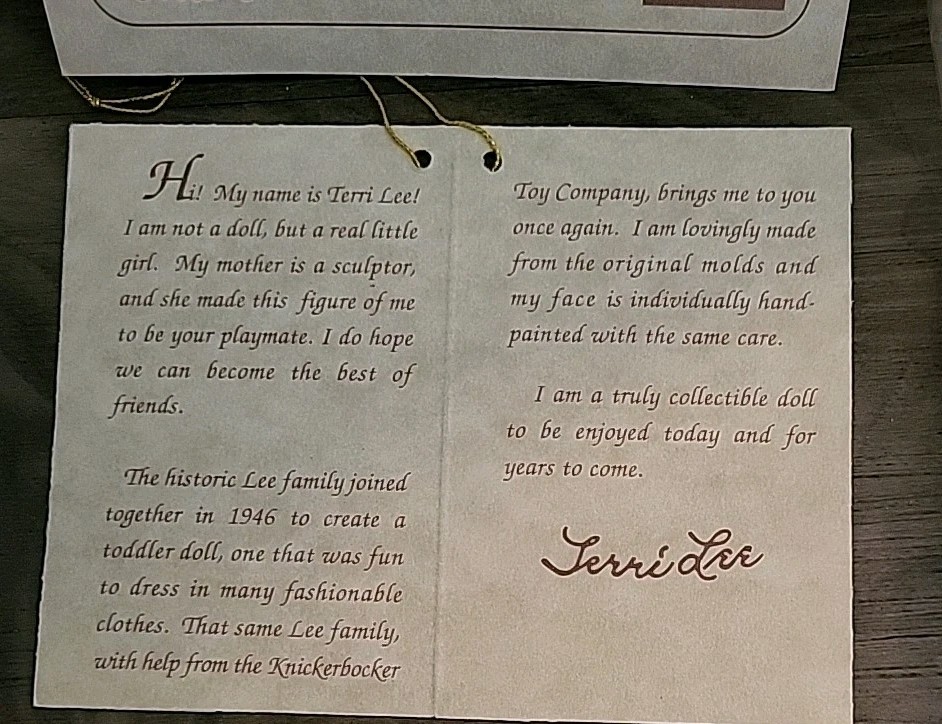 Hi! My name is Terri Lee!
I am not a doll, but a real little
girl. My mother is a sculptor,
and she made this figure of me
to be your playmate. I do hope
we can become the best of
friends.
The historic Lee family joined
together in 1946 to create a
toddler doll, one that was fun
to dress in many fashionable
clothes. That same Lee family,
with help from the Knickerbocker
Toy Company, brings me to you
once again. I am lovingly made
from the original molds and
my face is individually hand-
painted with the same care.
I am a truly collectible doll
to be enjoyed today and for
years to come.
Terri Lee